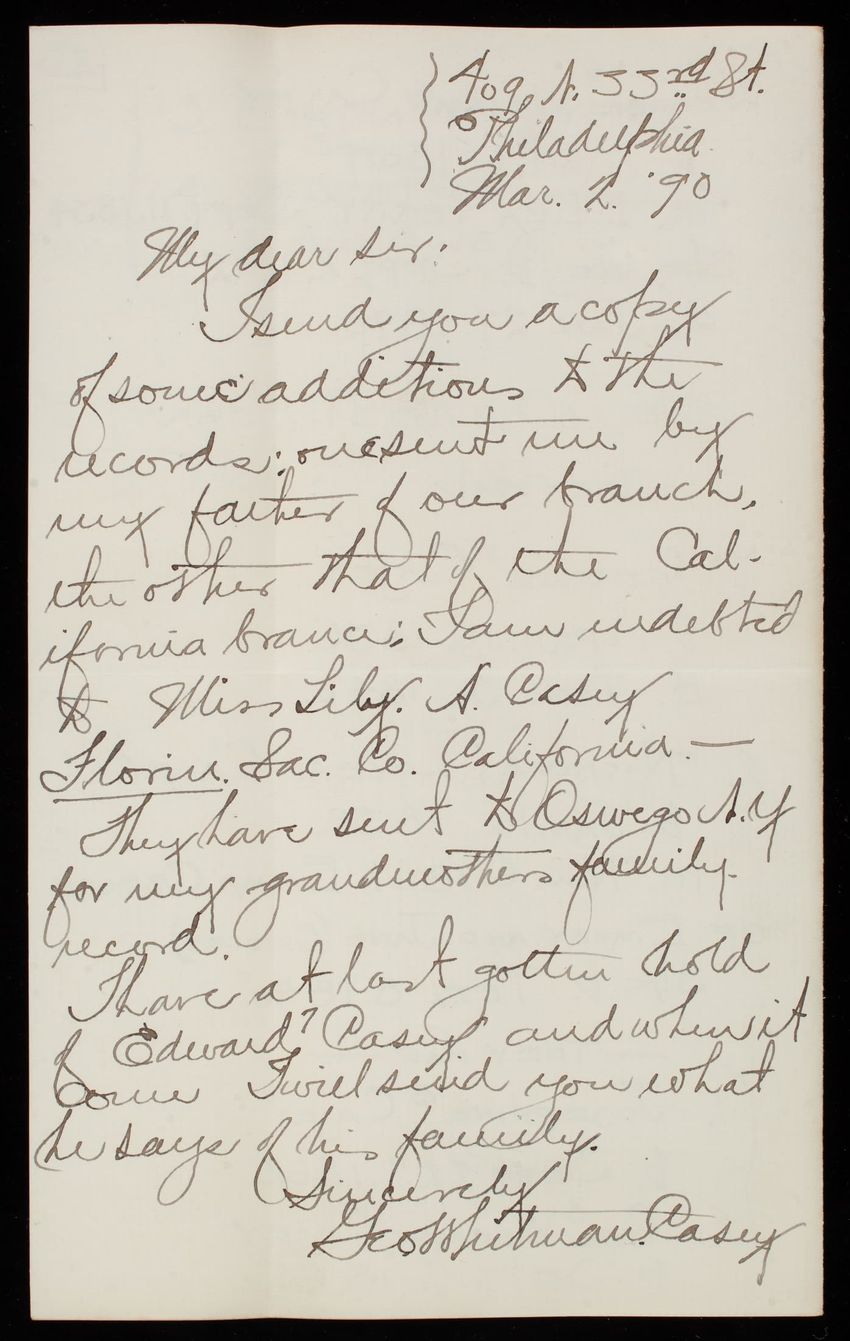 409. N. 33rd St.
Philadelphia
Mar. 2. '90
My dear sir:
I send you a copy
of some additions to the
records: one sent me by
my father of our branch,
the other that of the Cal-
ifornia branc; I am indebted
to Miss Lily. A. Casey
Florin. Sac. Co. California. —
They have sent to Oswego N.Y
for my grandmothers family
record.
I have at last gotten hold
of Edward7 Casey and when it
come I will send you what
he says of his family.
Sincerely
Geo Whitman. Casey